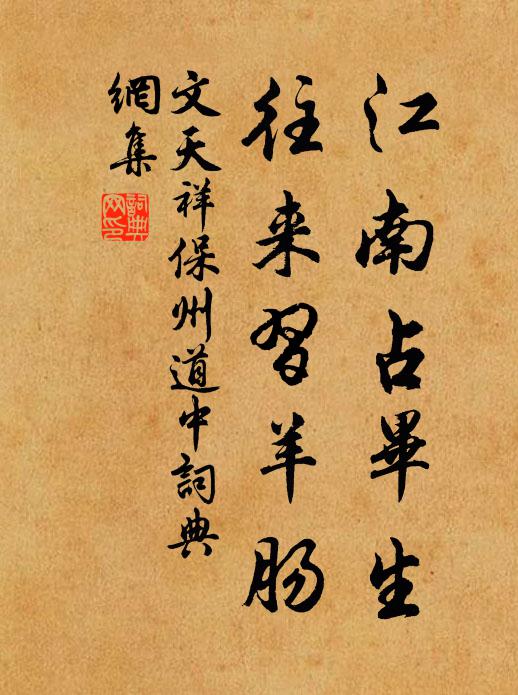 江南占畢生
往来習羊肠
文天祥保州道中詞典
網集
詞典網印